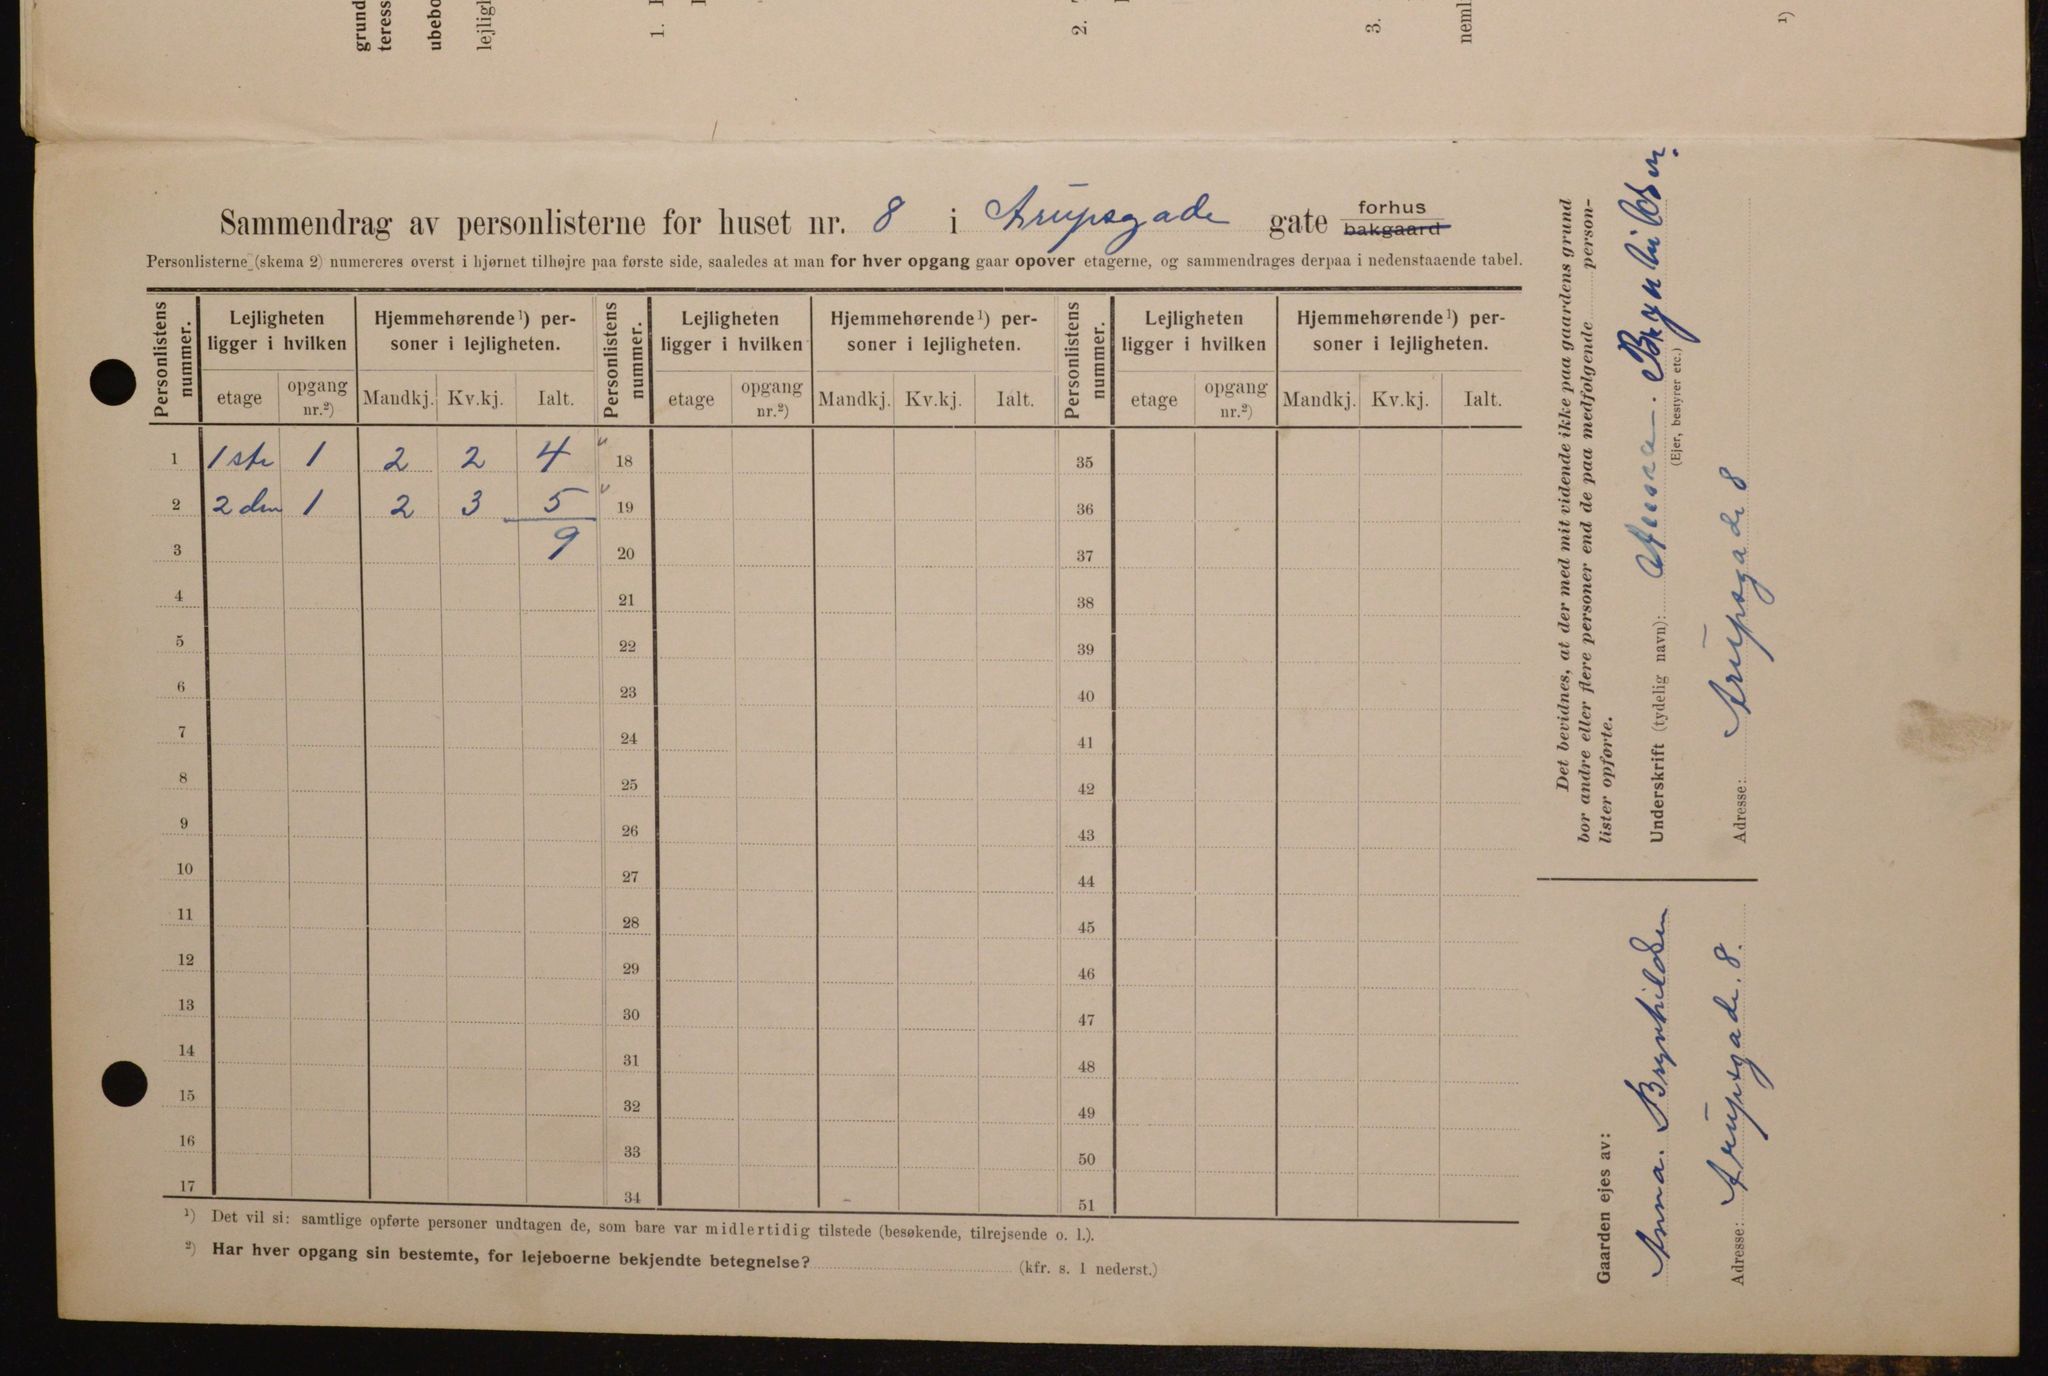 grund
teress
ubebo
lejligl
1.
2.
3.
neml
1)
Sammendrag av personlisterne for huset nr. 8 i Arupsgade gate forhus
bakgaard
Personlisterne (skema 2) numereres øverst i hjørnet tilhøjre paa første side, saaledes at man for hver opgang gaar opover etagerne, og sammendrages derpaa i nedenstaaende tabel.
Personlistens nummer. Lejligheten ligger i hvilken Hjemmehørende 1) personer i lejligheten. Personlistens nummer. Lejligheten ligger i hvilken Hjemmehørende 1) personer i lejligheten. Personlistens nummer. Lejligheten ligger i hvilken Hjemmehørende 1) personer i lejligheten.
etage opgang nr.2) Mandkj. Kv.kj. Ialt. etage opgang nr.2) Mandkj. Kv.kj. Ialt. etage opgang nr.2) Mandkj. Kv.kj. Ialt.
1 1ste 1 2 2 4 18 35
2 2den 1 2 3 5 19 36
3 9 20 37
4 21 38
5 22 39
6 23 40
7 24 41
8 25 42
9 26 43
10 27 44
11 28 45
12 29 46
13 30 47
14 31 48
15 32 49
16 33 50
17 34 51
1) Det vil si: samtlige opførte personer undtagen de, som bare var midlertidig tilstede (besøkende, tilrejsende o. l.).
2) Har hver opgang sin bestemte, for lejeboerne bekjendte betegnelse? (kfr. s. 1 nederst.)
Det bevidnes, at der med mit vidende ikke paa gaardens grund
bor andre eller flere personer end de paa medfølgende personlister opførte.
Underskrift (tydelig navn): Anna. Brynhildsen.
(Ejer, bestyrer etc.)
Adresse: Arupsgade 8
Gaarden ejes av:
Anna. Brynhildsen
Adresse: Arupsgade. 8.